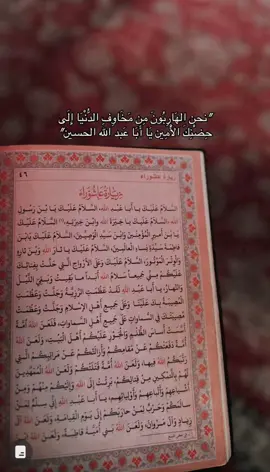 "نحن الهَارِبُونَ مِن مَخَاوِفِ الدُّنْيَا إِلَى
حِضْنِكَ الأَمِين يَا أَبَا عَبد الله الحسين"
زيارة عاشوراء
٤٦
زِيَارَة عَاشُورَاء
السَّلامُ عَلَيْكَ يَا أَبا عَبدِ اللهِ، السَّلامُ عَلَيْكَ يَا بْنَ رَسُولِ
اللهِ السَّلامُ عَلَيْكَ يَا خِيَرَةَ اللهِ وابْنَ خِيَرَتِهِ، السَّلامُ عَلَيْكَ
يَا بْنَ أَمِيرِ الْمُؤْمِنِينَ وَابْنَ سَيِّدِ الْوَصِيِّينَ، السَّلامُ عَلَيْكَ يَا بْنَ
فاطِمَةَ سَيِّدَةِ نِساءِ الْعالَمِينَ، السَّلامُ عَلَيْكَ يَا ثارَ اللهِ وَابْنَ ثارِهِ
وَالْوِتْرَ الْمَوْتُورَ، السَّلامُ عَلَيْكَ وَعَلَى الْأَرْواحِ الَّتِي حَلَّتْ بِفِنائِكَ
عَلَيْكُمْ مِنِّي جَمِيعاً سَلامُ اللهِ أَبَداً ما بَقِيتُ وَبَقِيَ اللَّيْلُ
وَالنَّهارُ، يَا أَبا عَبدِ اللهِ لَقَدْ عَظُمَتِ الرَّزِيَّةُ وَجَلَّتْ وَعَظُمَتِ
الْمُصِيبَةُ بِكَ عَلَيْنا وَعَلَى جَمِيعِ أَهْلِ الْإِسْلامِ وَجَلَّتْ وَعَظُمَتْ
مُصِيبَتُكَ فِي السَّماواتِ عَلَى جَمِيعِ أَهْلِ السَّماواتِ، فَلَعَنَ اللهُ أُمَّةً
أَسَّسَتْ أَساسَ الظُّلْمِ وَالْجَوْرِ عَلَيْكُمْ أَهْلَ الْبَيْتِ، وَلَعَنَ اللهُ
أُمَّةً دَفَعَتْكُمْ عَنْ مَقامِكُمْ وَأَزالَتْكُمْ عَنْ مَراتِبِكُمُ الَّتِي
رَتَّبَكُمُ اللهُ فِيها، وَلَعَنَ اللهُ أُمَّةً قَتَلَتْكُمْ وَلَعَنَ اللهُ الْمُمَهِّدِينَ
لَهُمْ بِالتَّمْكِينِ مِنْ قِتالِكُمْ، بَرِئْتُ إِلَى اللهِ وَإِلَيْكُمْ مِنْهُمْ وَمِنْ
أَشْياعِهِمْ وَأَتْباعِهِمْ وَأَوْلِيائِهِمْ، يَا أَبا عَبدِ اللهِ إِنِّي سِلْمٌ لِمَنْ
سالَمَكُمْ وَحَرْبٌ لِمَنْ حارَبَكُمْ إِلَى يَوْمِ الْقِيامَةِ، وَلَعَنَ اللهُ آلَ
زِيادٍ وَآلَ مَرْوانَ، وَلَعَنَ اللهُ بَنِي أُمَيَّةَ قاطِبَةً، وَلَعَنَ اللهُ